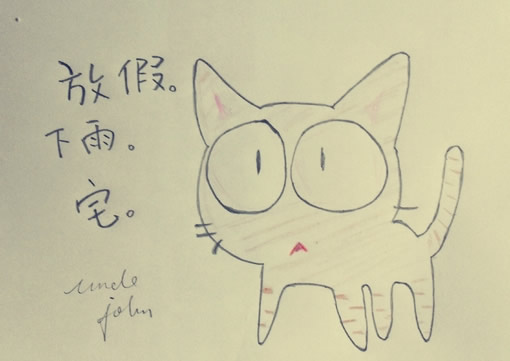 放假。
下雨。
宅。
uncle
john